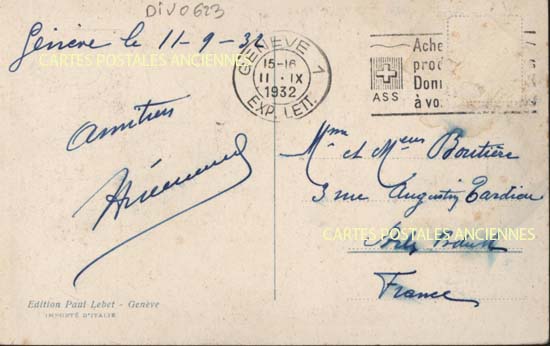 DIV0623
Genève le 11-9-32
CARTES POSTALES ANCIENNES
GENEVE 1
15-16
11 · IX
1932
EXP. LETT.
Ache
prod
Donn
à vo
ASS
Amitiés
Mme et Meur Boutière
3 rue Augustin Tardieu
CARTES POSTALES ANCIENNES
France
Edition Paul Lebet - Genève
IMPORTÉ D'ITALIE